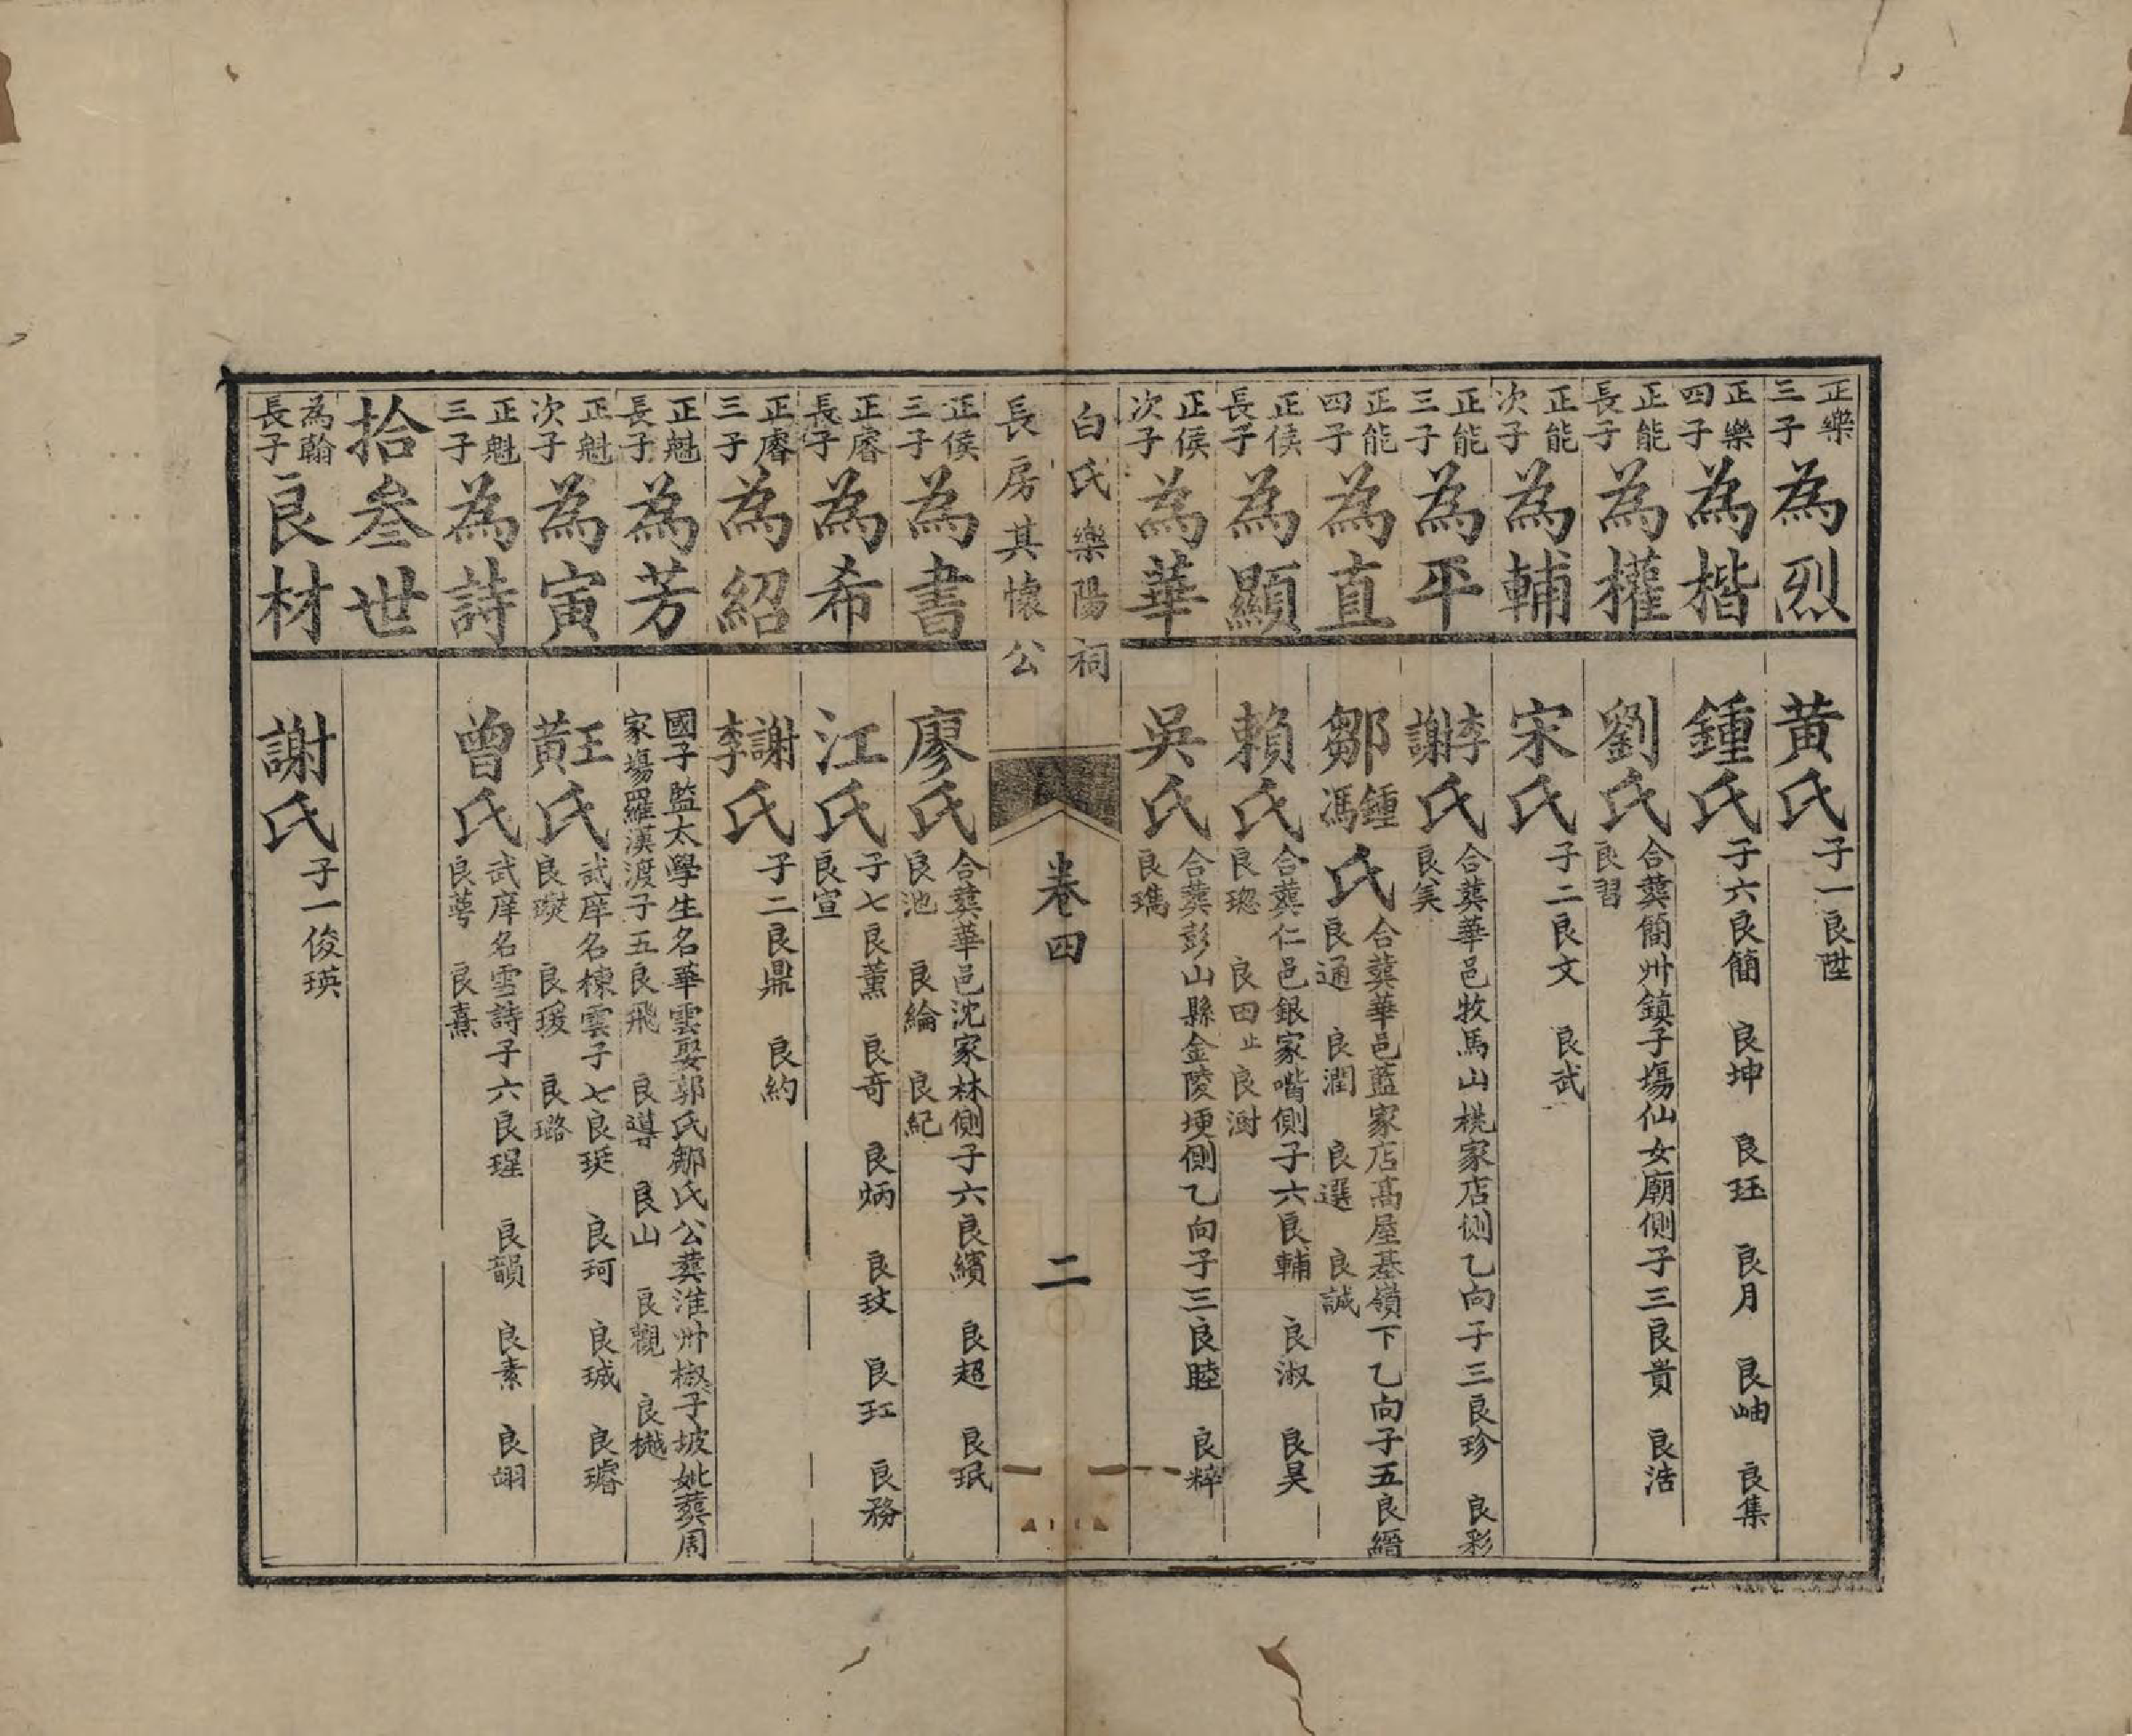 正樂三子 為烈 黄氏 子一良陞
正樂四子 為楷 鍾氏 子六良簡 良坤 良珏 良月 良岫 良集
正能長子 為權 劉氏 合葬簡州鎮子場仙女廟側子三良貴 良浩 良習
正能次子 為輔 宋氏 子二良文 良武
正能三子 為平 李謝氏 合葬華邑牧馬山桃家店側乙向子三良珍 良彩 良美
正能四子 為直 鄒鍾馮氏 合葬華邑藍家店高屋基嶺下乙向子五良縉 良通 良潤 良選 良誠
正侯長子 為顯 賴氏 合葬仁邑銀家喈側子六良輔 良淑 良昊 良璁 良田止 良澍
正侯次子 為華 吳氏 合葬彭山縣金陵埂側乙向子三良睦 良粹 良瓗
白氏樂陽祠
卷四 二
長房其懷公
正侯三子 為書 廖氏 合葬華邑沈家林側子六良繽 良超 良珉 良池 良綸 良紀
正睿長子 為希 江氏 子七良薰 良奇 良炳 良玟 良玒 良務 良宣
正睿三子 為紹 謝李氏 子二良鼎 良約
正魁長子 為芳 國子監太學生名華雲娶郭氏鄒氏公葬淮州椒子坡妣葬周家場羅漢渡子五良飛 良導 良山 良觀 良樾
正魁次子 為寅 王黄氏 武庠名棟雲子七良珽 良珂 良珹 良璿 良璇 良瑗 良璐
正魁三子 為詩 曾氏 武庠名雪詩子六良瑆 良韻 良素 良翊 良萼 良熹
拾叁世
為翰長子 良材 謝氏 子一俊瑛